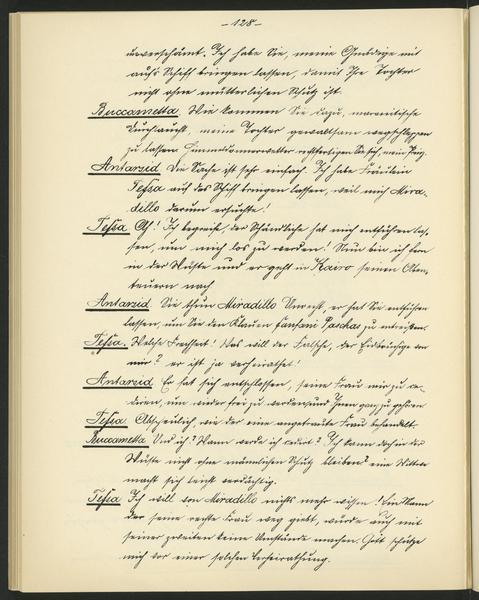 -128-
unverschämt. Ich habe Sie, meine Gnädige mit
auf's Schiff bringen lassen, damit Ihre Tochter
nicht ohne mütterlichen Schutz ist.
Buccametta. Wie kommen Sie dazu, marenitische
Durchlaucht, meine Tochter gewaltsam wegschleppen
zu lassen. Himmeldonnerwetter rechtfertigen Sie sich, mein Prinz.
Antarsid. Die Sache ist sehr einfach. Ich habe Fräulein
Tessa auf das Schiff bringen lassen, weil mich Mira-
dillo darum ersuchte!
Tessa Ah! Ich begreife, der Schändliche hat mich entführen las-
sen, um mich los zu werden! Nun bin ich fern
in der Wüste und er geht in Kairo seinen Aben-
teuern nach
Antarsid. Sie thun Miradillo Unrecht, er hat Sie entführen
lassen, um Sie den Klauen Fanfani Paschas zu entreißen.
Tessa. Welche Frechheit! Was will der Falsche, der Eidbrüchige von
mir? er ist ja verheirathet!
Antarsid Er hat sich entschlossen, seine Frau mir zu ce-
diren, um wieder frei zu werden und Ihnen ganz zu gehören
Tessa Abscheulich, wie der eine angetraute Frau behandelt.
Buccametta Und ich? Wann werde ich cedirt? Ich kann doch in der
Wüste nicht ohne männlichen Schutz bleiben? eine Witwe
macht sich leicht verdächtig.
Tessa Ich will von Miradillo nichts mehr wissen! Ein Mann
der seine rechte Frau weg giebt, würde auch mit
seiner zweiten keine Umstände machen. Gott schütze
mich vor einer solchen Verheirathung.